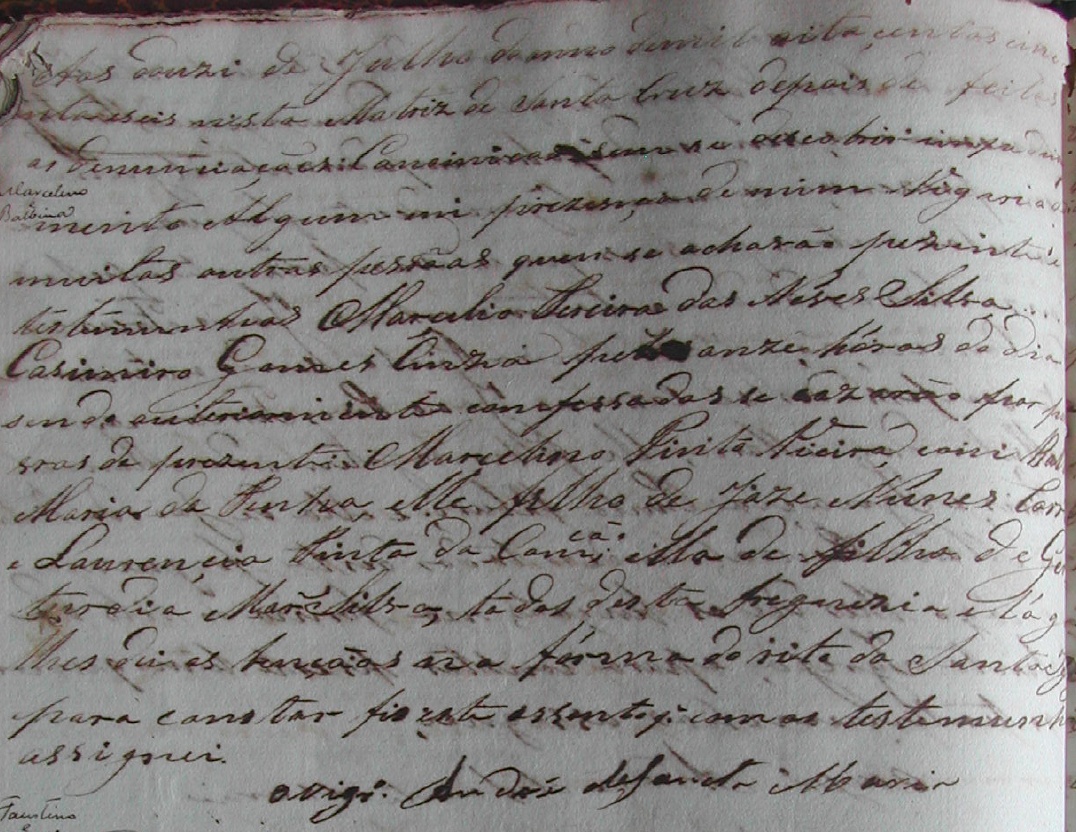 Aos douze de Julho do anno de mil oito centos cinco
enta e seis nesta Matriz de Santa Cruz depois de feitas
as denunciaçoens Canonicas sem se descobrir impedi
Marcelino
Balbina
mento Algum em prezença de mim Vigario e
muitas outras pessoas que se acharão prezentes
testemunhas Marcelio Pereira das Neves e Silva
Casimiro Gomes Cinza pelas onze hóras do dia
sendo anteriormente confessados se cazarão por
vras de prezente Marcelino Pinto Vieira com
Maria da elle filho de Joze Nunes
e Laurencia Pinta da ella de filha de
Mar^a Silva, todos desta freguezia e lógo
lhes dei as bençãos na fórma do rito da Santa
para constar fiz este assento q. com as testemunhas
assignei.
O Vigr.º André de Sancta Maria
Faustino